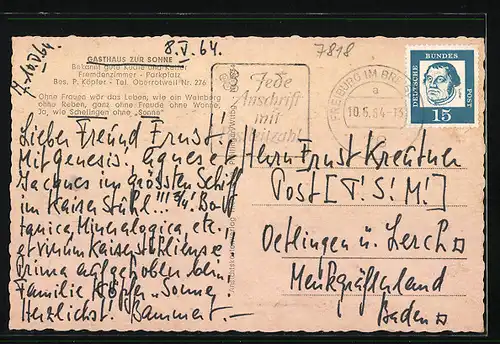 8.V.64.
7818
GASTHAUS ZUR SONNE
Bekannt gute Küche und Keller
Fremdenzimmer - Parkplatz
Bes. P. Köpfer - Tel. Oberrotweil Nr. 276
Ohne Frauen wär das Leben, wie ein Weinberg
ohne Reben, ganz ohne Freude ohne Wonne,
Ja, wie Schelingen ohne „Sonne"
Jede
Anschrift
mit
Postleitzahl
FREIBURG IM BR
a
10.5.64-13
DEUTSCHE BUNDES POST
15
Lieber Freund Ernst!
Mit Genesis. Agnes et
Jacques im grössten Schiff
im Kaiserstühl!!!
tanica, Mineralogica, etc.
et vinum Kaiserstuhliense!
Prima aufgehoben beim
Familie Köpfer „Sonne"
Herzlichst. Bammert.
Herrn Ernst Kreutner
Post [T!S!M!]
Oetlingen ü. Lörrach
Markgräflerland
Baden